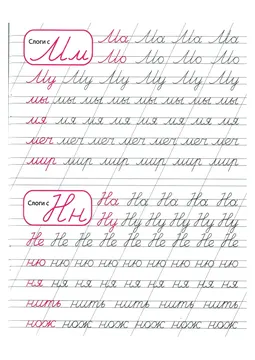 Слоги с Мм
Ма Ма Ма Ма
Мо Мо Мо Мо
Му Му Му Му Му Му
мы мы мы мы мы мы мы мы
мя мя мя мя мя мя мя мя
меч меч меч меч меч меч меч
мир мир мир мир мир мир
Слоги с Нн
На На На На
Ну Ну Ну Ну Ну Ну
Не Не Не Не Не Не Не Не Не
ню ню ню ню ню ню ню ню
ня ня ня ня ня ня ня ня
нить нить нить нить нить
нож нож нож нож нож нож